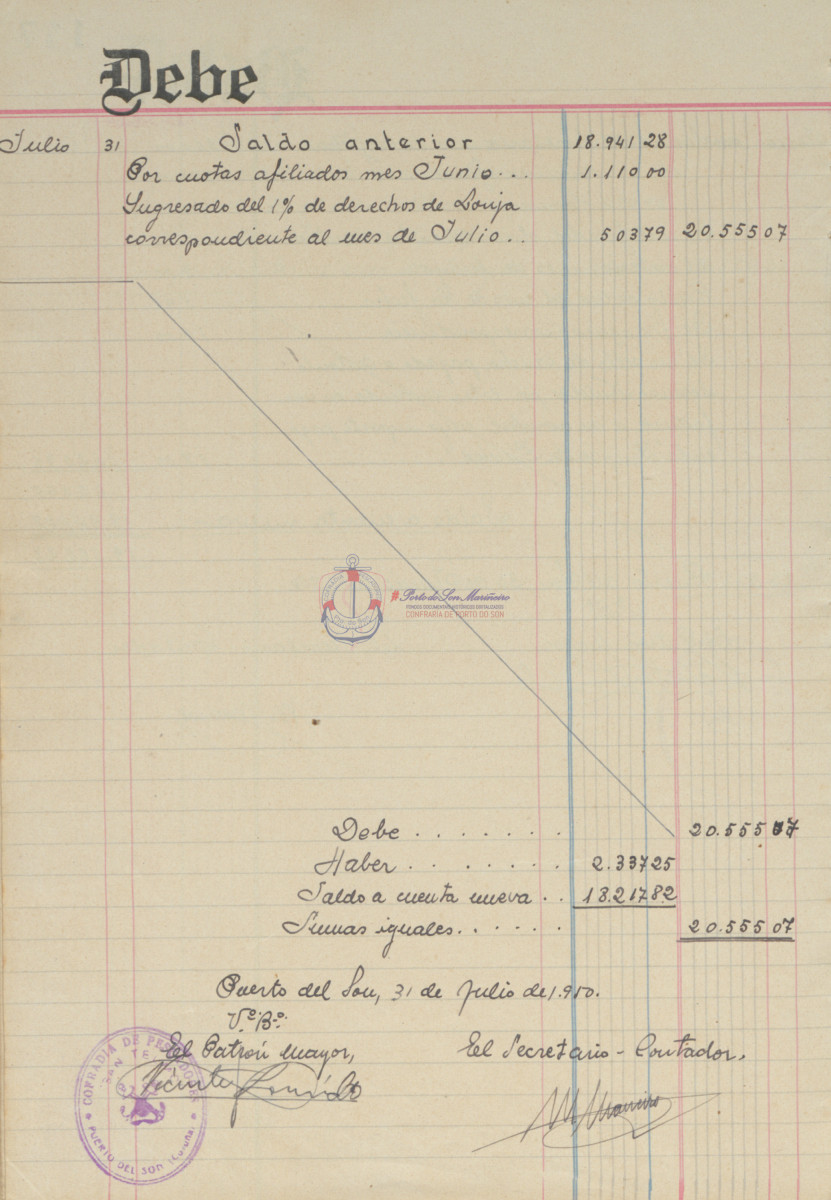 Debe
Julio 31 Saldo anterior 18.941 28
Por cuotas afiliados mes Junio... 1.110 00
Ingresado del 1% de derechos de Lonja
correspondiente al mes de Julio.. 503 79 20.555 07
#Porto do Son Mariñeiro
FONDOS DOCUMENTAIS HISTÓRICOS DIXITALIZADOS
CONFRARÍA DE PORTO DO SON
Debe . . . . . . . 20.555 07
Haber . . . . . . . 2.337 25
Saldo a cuenta nueva . . 18.217 82
Sumas iguales. . . . . . 20.555 07
Puerto del Son, 31 de Julio de 1.950.
V.º B.º:
El Patrón Mayor, El Secretario-Contador,
Vicente
COFRADIA DE PESCADORES
PUERTO DEL SON (Coruña)